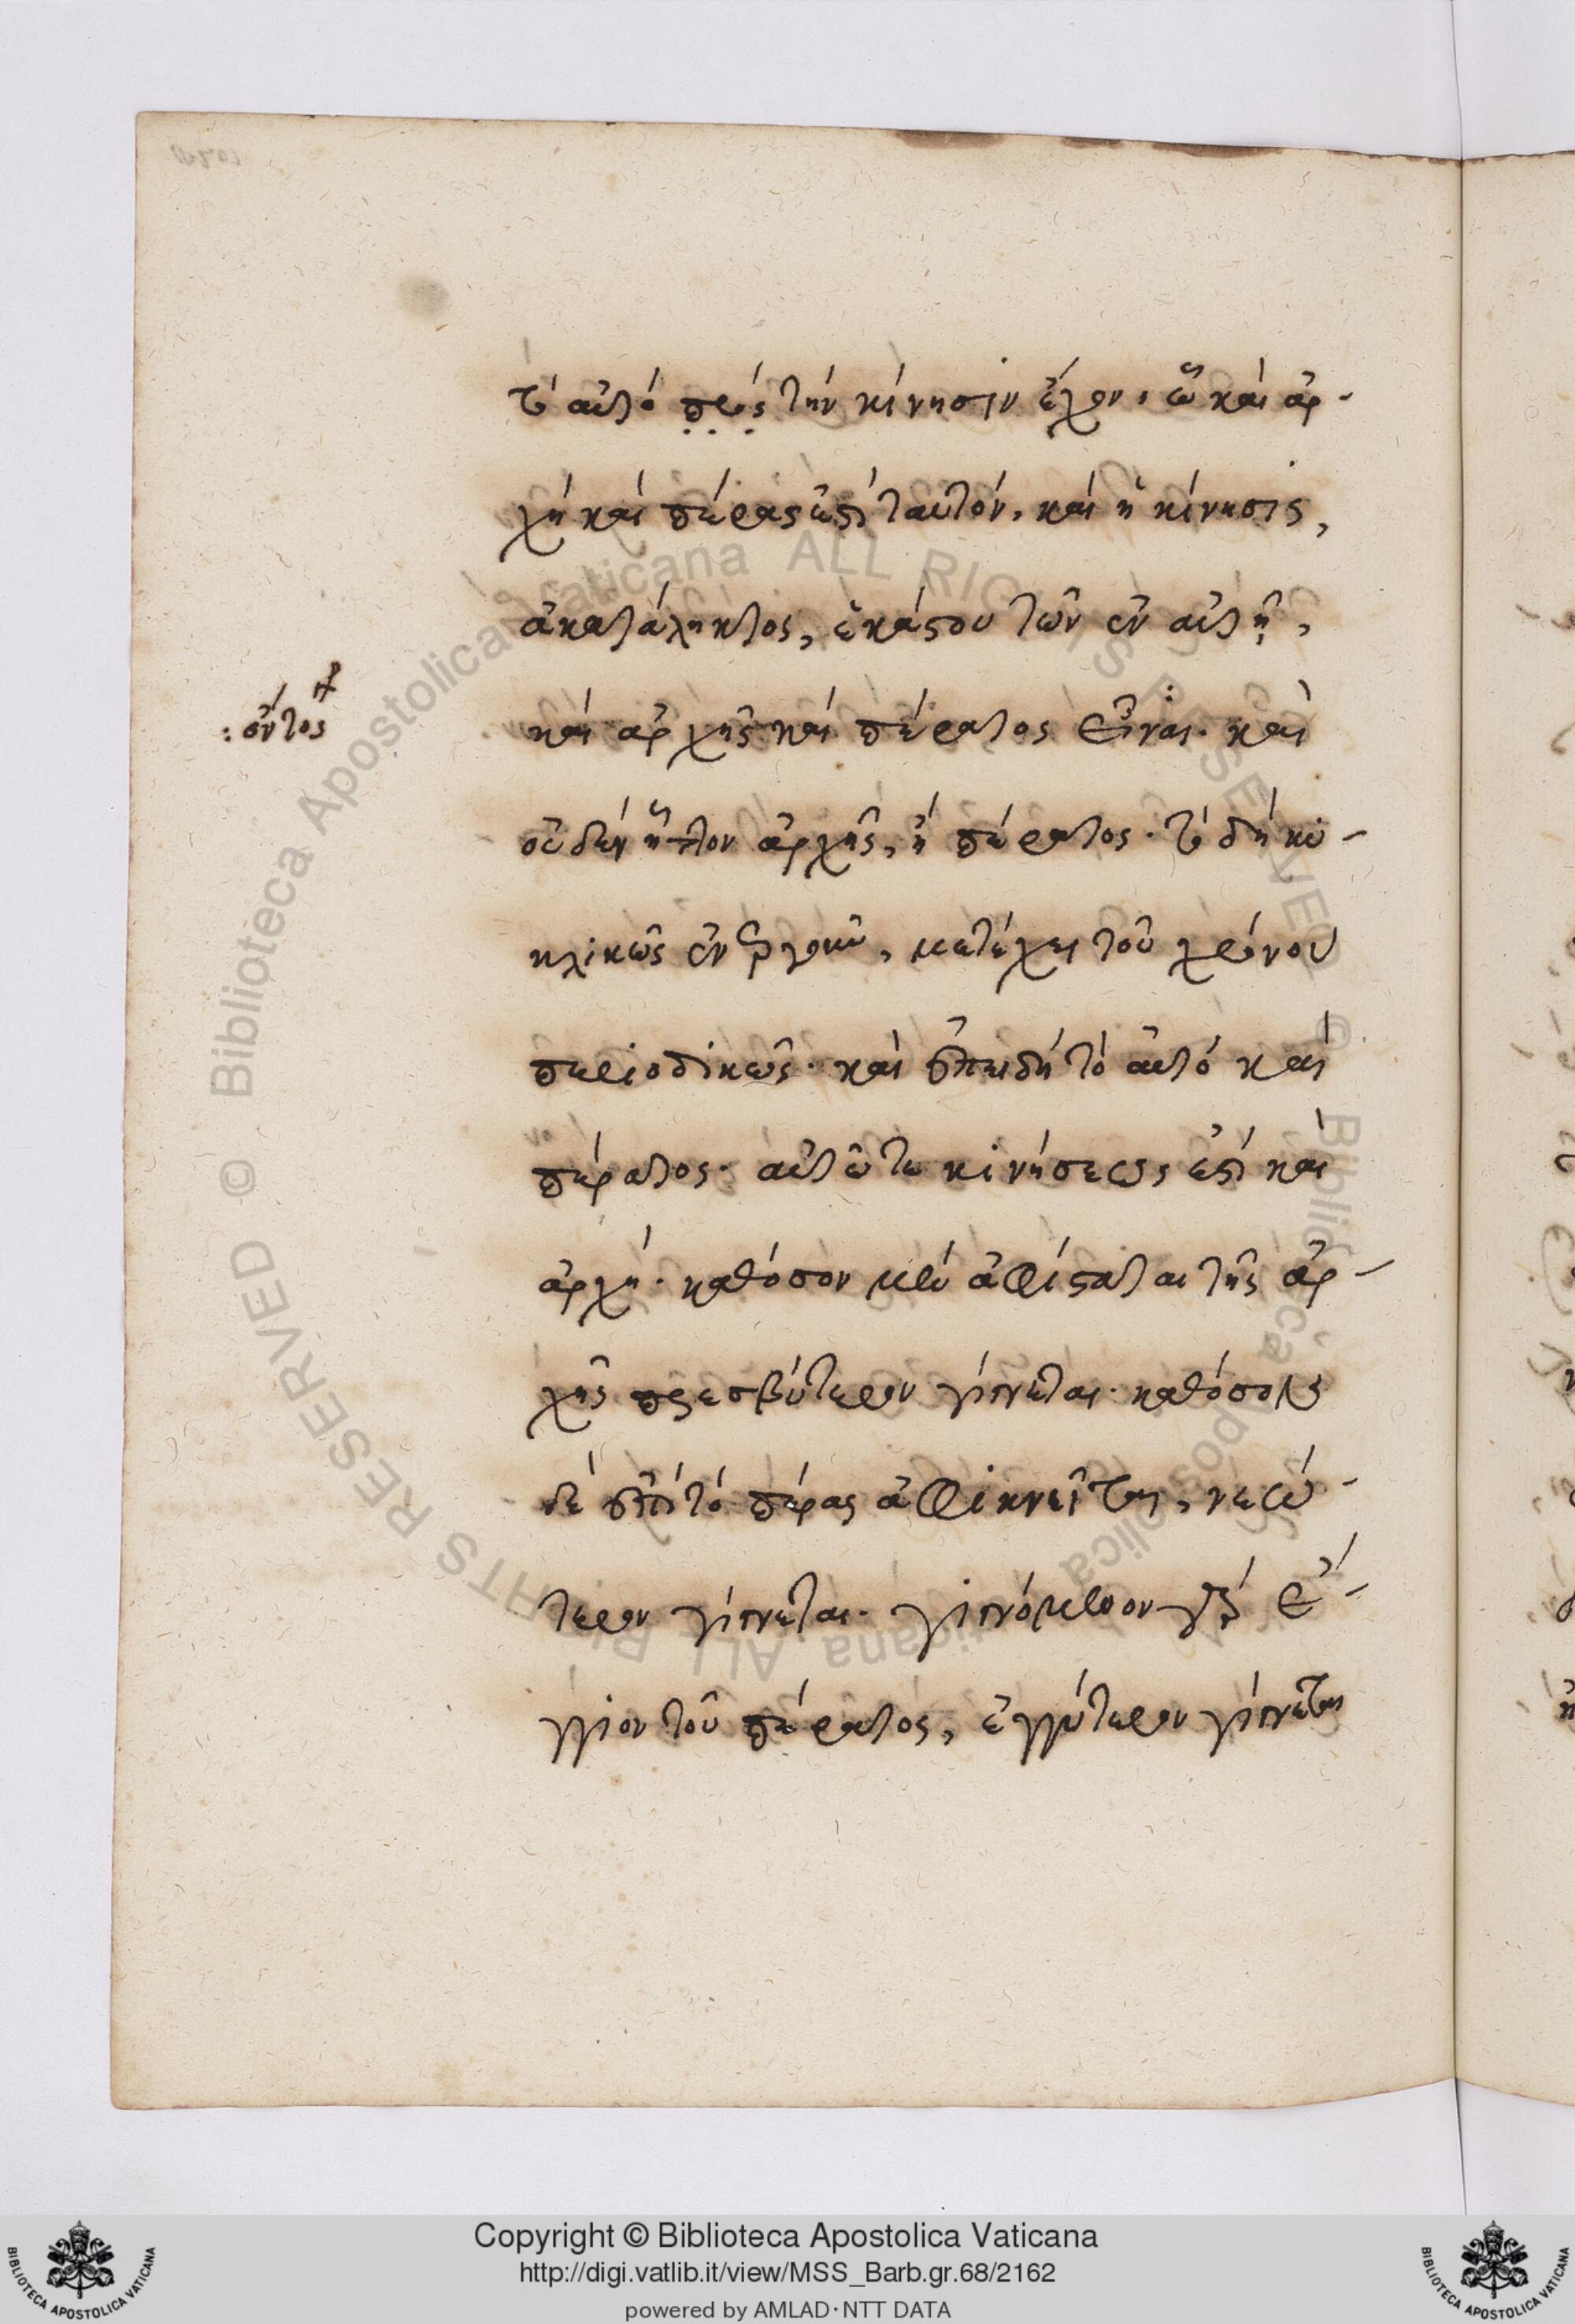 τὸ αὐτό πρός τήν κίνησιν ἔχον, ὧ καὶ ἀρ-
χή καὶ πέρας ἐστὶ ταυτόν, καὶ ἡ κίνησις,
ἀκατάληκτος, ἑκάστου τῶν ἐν αὐτῇ,
καὶ ἀρχῆς καὶ πέρατος εἶναι· καὶ
: ὄντος
οὐδέν ἧττον ἀρχῆς, ἢ πέρατος· τὸ δὴ κυ-
κλικῶς ἐνεργοῦν, μετέχει τοῦ χρόνου
περιοδικῶς· καὶ ἐπειδή τὸ αὐτό καὶ
πέρατος· αὐτῶ τῶ κινήσεως ἐστὶ καὶ
ἀρχή· καθόσον μέν ἀφίσταται τῆς ἀρ-
χῆς πρεσβύτερον γίγνεται· καθόσον
δέ ἐπὶ τό πέρας ἀφικνεῖται, νεώ-
τερον γίγνεται· γιγνόμενον γὰρ ἔ-
γγιον τοῦ πέρατος, ἐγγύτερον γίγνεται
Copyright © Biblioteca Apostolica Vaticana
http://digi.vatlib.it/view/MSS_Barb.gr.68/2162
powered by AMLAD·NTT DATA
BIBLIOTECA APOSTOLICA VATICANA
BIBLIOTECA APOSTOLICA VATICANA
© Biblioteca Apostolica Vaticana ALL RIGHTS RESERVED © Biblioteca Apostolica Vaticana ALL RIGHTS RESERVED